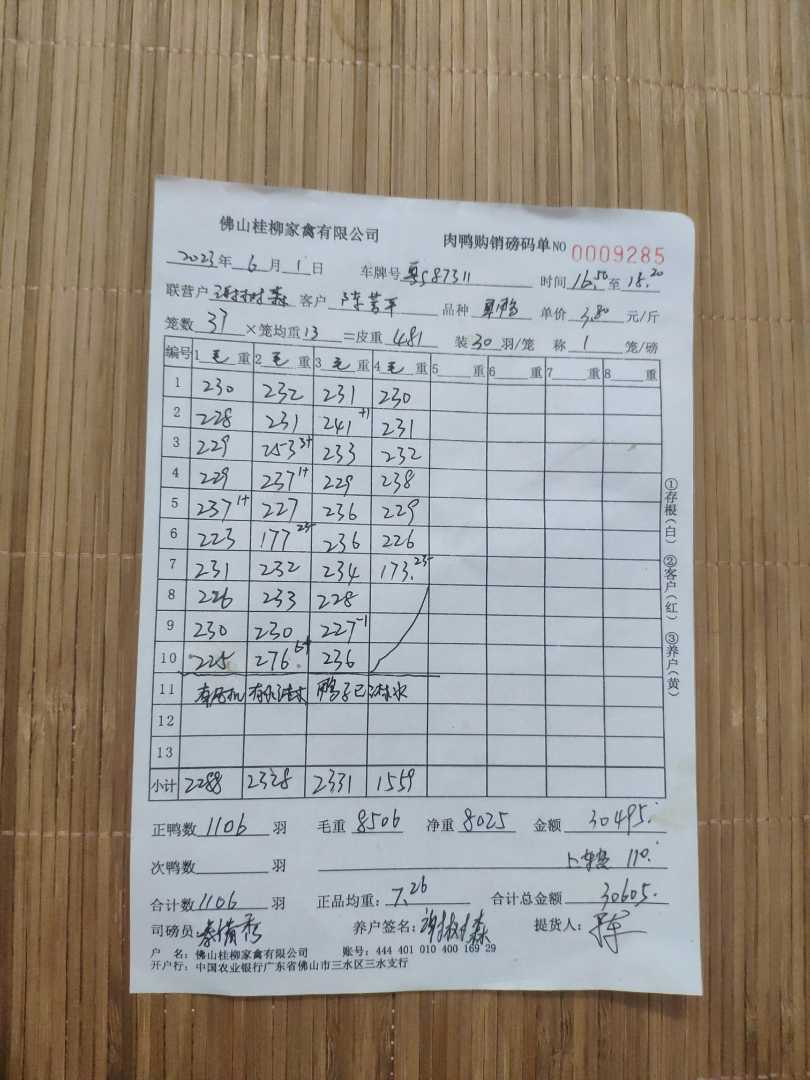 佛山桂柳家禽有限公司 肉鸭购销磅码单NO 0009285
2023年 6月 1日 车牌号 粤S87311 时间 16.50至 18.20
联营户 谢树森 客户 陈 品种 鸭 单价 3.80 元/斤
笼数 37 ×笼均重 13 =皮重 481 装 30 羽/笼 称 1 笼/磅
编号 1 毛 重 2 毛 重 3 毛 重 4 毛 重 5 重 6 重 7 重 8 重
1 230 232 231 230
2 228 231 241 +1 231
3 229 253 3+ 233 232
4 229 237 1+ 229 238
5 237 1+ 227 236 229
6 223 177 236 226
7 231 232 234 173.
8 226 233 228
9 230 230 227 -1
10 225 276. 6+ 236
11 鸭子已
12
13
小计 2288 2328 2331 1559
正鸭数 1106 羽 毛重 8506 净重 8025 金额 30495.
次鸭数 羽 上车 110.
合计数 1106 羽 正品均重: 7.26 合计总金额 30605.
司磅员: 养户签名: 谢树森 提货人:
户 名: 佛山桂柳家禽有限公司 账号: 444 401 010 400 169 29
开户行: 中国农业银行广东省佛山市三水区三水支行
①存根(白) ②客户(红) ③养户(黄)